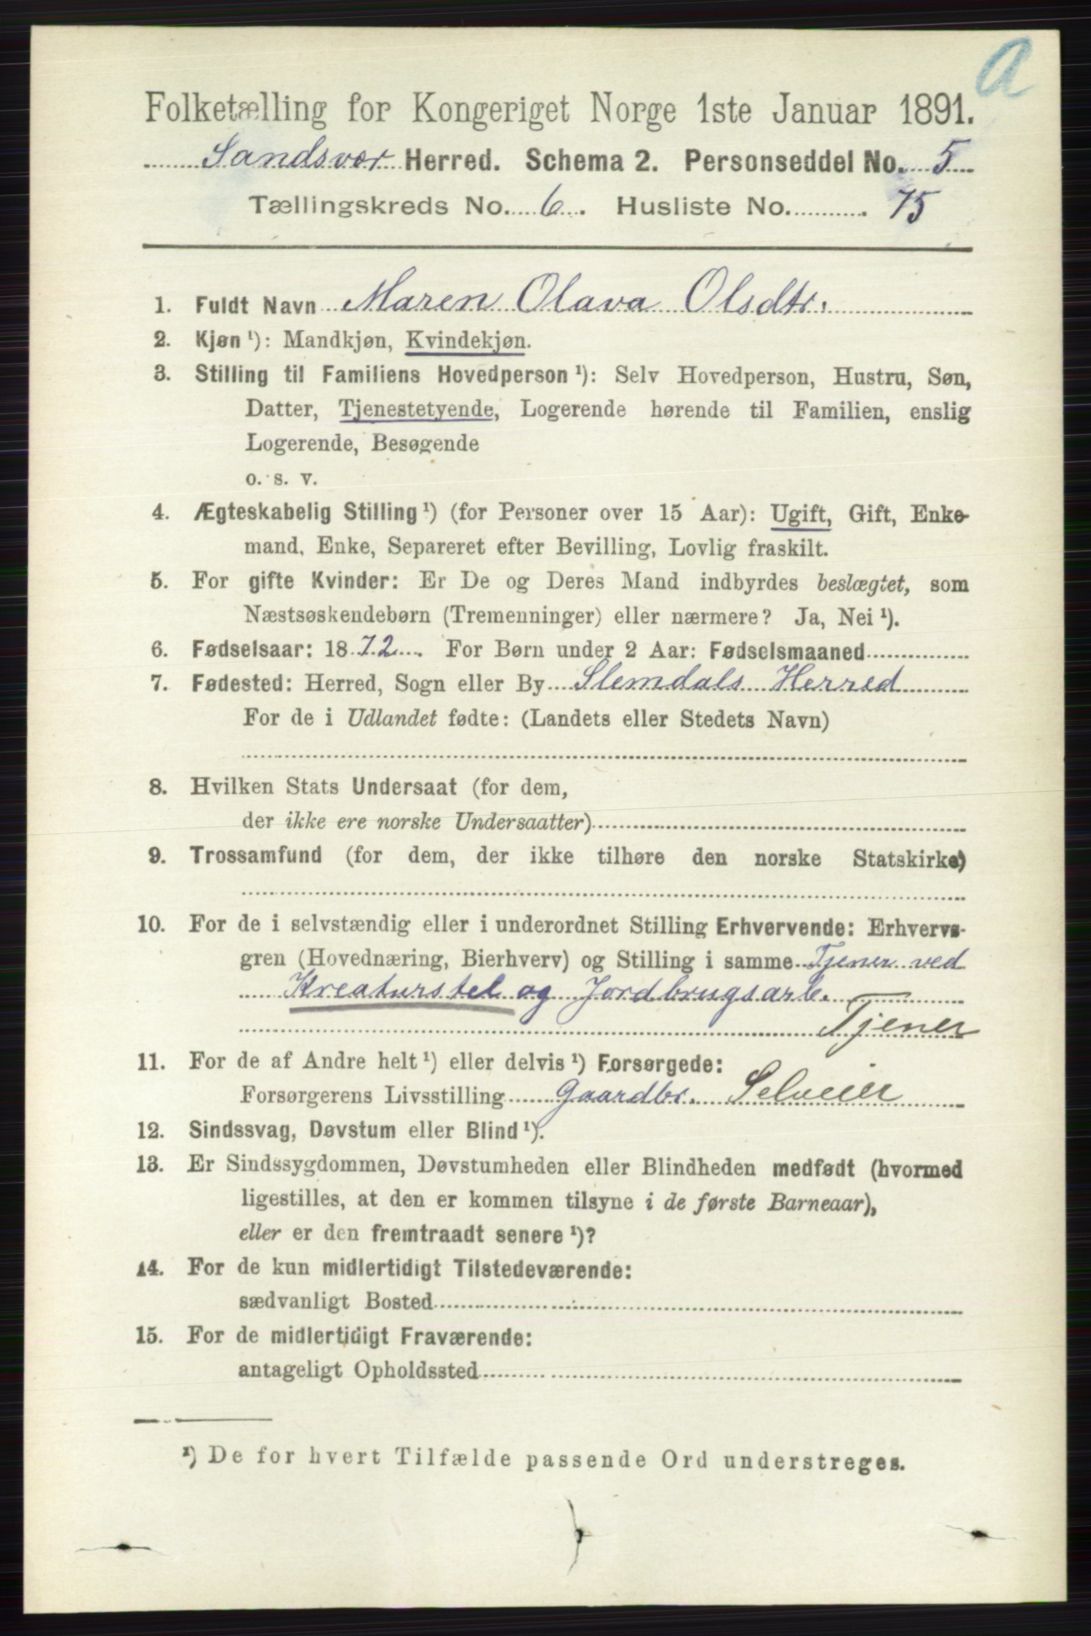 a
Folketælling for Kongeriget Norge 1ste Januar 1891.
Sandsvær Herred. Schema 2. Personseddel No. 5
Tællingskreds No. 6. Husliste No. 75
1. Fuldt Navn Maren Olava Olsdtr.
2. Kjøn ¹): Mandkjøn, Kvindekjøn.
3. Stilling til Familiens Hovedperson ¹): Selv Hovedperson, Hustru, Søn,
Datter, Tjenestetyende, Logerende hørende til Familien, enslig
Logerende, Besøgende
o. s. v.
4. Ægteskabelig Stilling ¹) (for Personer over 15 Aar): Ugift, Gift, Enke-
mand, Enke, Separeret efter Bevilling, Lovlig fraskilt.
5. For gifte Kvinder: Er De og Deres Mand indbyrdes beslægtet, som
Næstsøskendebørn (Tremenninger) eller nærmere? Ja, Nei ¹).
6. Fødselsaar: 1872. For Børn under 2 Aar: Fødselsmaaned
7. Fødested: Herred, Sogn eller By Slemdals Herred
For de i Udlandet fødte: (Landets eller Stedets Navn)
8. Hvilken Stats Undersaat (for dem,
der ikke ere norske Undersaatter)
9. Trossamfund (for dem, der ikke tilhøre den norske Statskirke)
10. For de i selvstændig eller i underordnet Stilling Erhvervende: Erhvervs-
gren (Hovednæring, Bierhverv) og Stilling i samme Tjener ved
Kreaturstel og Jordbrugsarb.
Tjener
11. For de af Andre helt ¹) eller delvis ¹) Forsørgede:
Forsørgerens Livsstilling Gaardbr. Selveier
12. Sindssvag, Døvstum eller Blind ¹).
13. Er Sindssygdommen, Døvstumheden eller Blindheden medfødt (hvormed
ligestilles, at den er kommen tilsyne i de første Barneaar),
eller er den fremtraadt senere ¹)?
14. For de kun midlertidigt Tilstedeværende:
sædvanligt Bosted
15. For de midlertidigt Fraværende:
antageligt Opholdssted
¹) De for hvert Tilfælde passende Ord understreges.